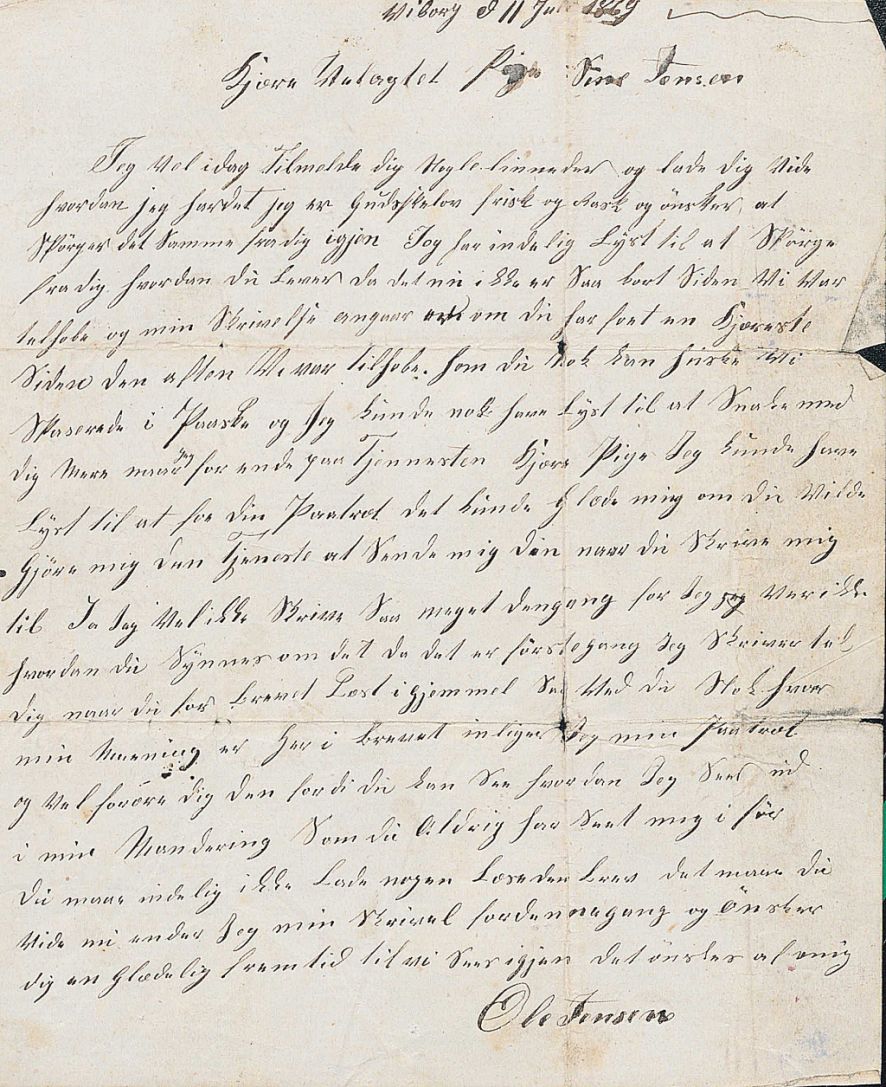 Viborg d 11 Juli 1869
Kjære Velagtet Pige Sine Jensen
Jeg Vel idag Tilmelde dig Nogle linneder og lade dig Vide
hvordan jeg hardet jeg er Gudskelov frisk og Rask og önsker at
Spörger det Samme fra dig igjen Jeg har indelig Lyst til at Spörge
fra dig hvordan du Lever da det nu ikke er Saa kort Siden Vi Var
telhobe og min Skrivelse angaar om du har foet en Kjæreste
Siden den aften Vi var tilhobe. som du Nok kan huske Vi
Spaserede i Paaske og Jeg kunde nok have Lyst til at Snake med
dig Mere naar Jeg for ende paa Tjennesten Kjære Pige Jeg kunde have
Lyst til at foe din Paatræt det kunde Glæde mig om du Vilde
Gjöre mig den Tjeneste at Sende mig den naar du Skrive mig
til Ja Jeg Vel ikke Skrive Saa meget dengang for Jeg Ver ikke
hvordan du Synnes om det da det er förstegang Jeg Skriver tel
dig naar du for brevet Læst igjemmel Saa Ved du Nok hvor
min Meening er her i brevet inliger Jeg min Paatræt
og Vel forære dig den fordi du kan See hvordan Jeg Sees ud
i min Mondering Som du Aldrig har Seet mig i för
du maae indelig ikke Lade nogen Læse den brev det maae du
Vide nu ender Jeg min Skrivel fordennegang og Önsker
dig en Glædelig fremtid til vi Sees igjen det önskes af mig
Ole Jensen